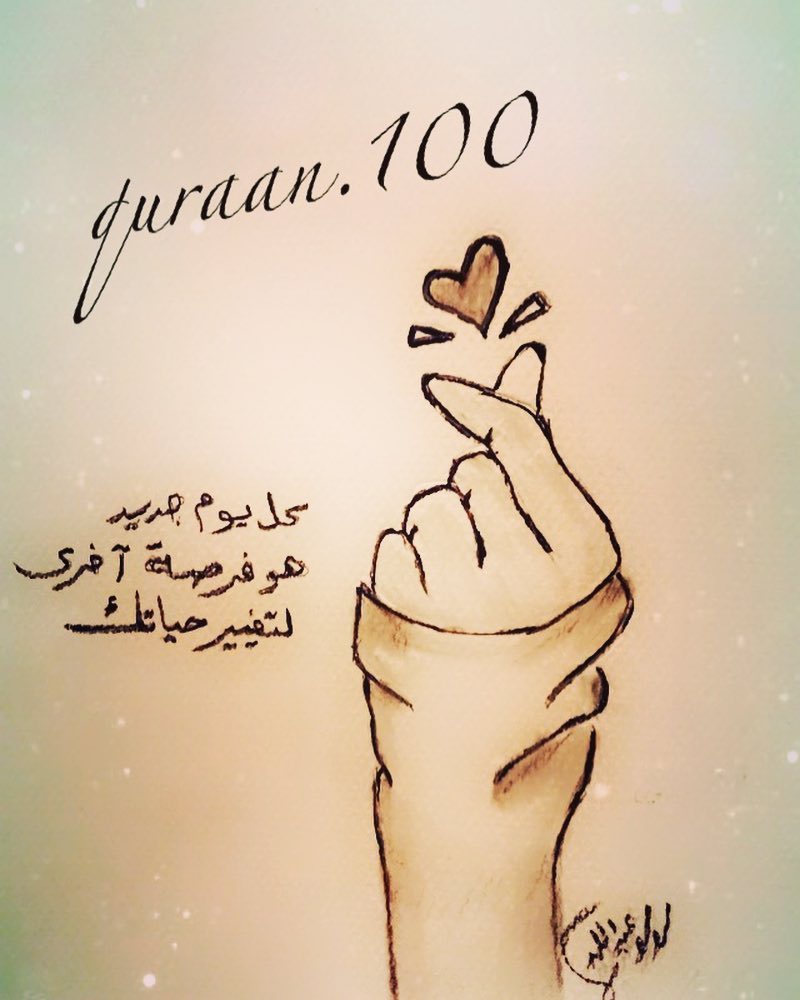 quraan.100
كل يوم جديد
هو فرصة آخرى
لتغيير حياتك
لولو عبدالله